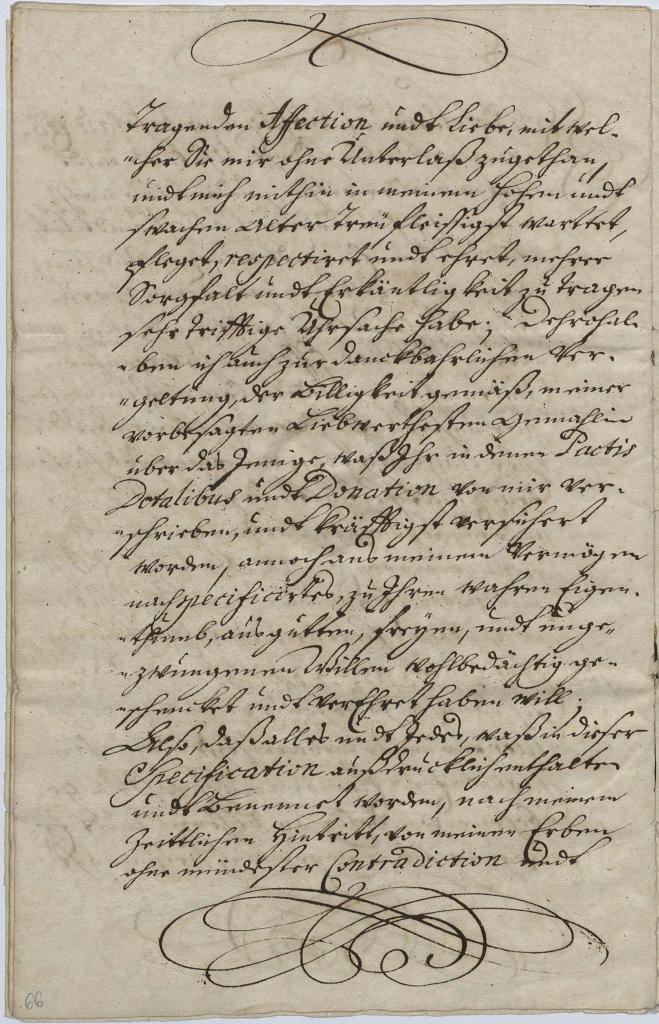 Tragenden Affection undt Liebe, mit wel-
-cher Sie mir ohne Unterlaß zugethan,
undt mich mithin in meinem hohen undt
swachen Alter Treüfleissigst warttet,
pfleget, respectiret undt ehret, mehrer
Sorgfalt undt Erkäntligkeit zu tragen
sehr trifftige Uhrsache habe; Dehrohal-
-ben ich auch zur danckbahrlichen Ver-
-geltung, der Billigkeit gemäß, meiner
vorbesagten Liebwerthesten Gemahlin
über das Jenige, waß Ihr in denen Pactis
Dotalibus undt Donation von mir ver-
-schrieben, undt kräfftigst versichert
worden, annoch aus meinem Vermögen
nachspecificirtes, zu Ihren wahren Eigen-
-thumb, aus gutten, freyen, undt unge-
-zwungenen Willen wohlbedächtig ge-
-schencket undt verEhret haben will;
Also, daß alles undt Jedes, waß in dieser
Specification außdrücklich enthalten
undt Benennet worden, nach meinem
Zeittlichen Hintritt, von meinen Erben
ohne mündester Contradiction undt
66